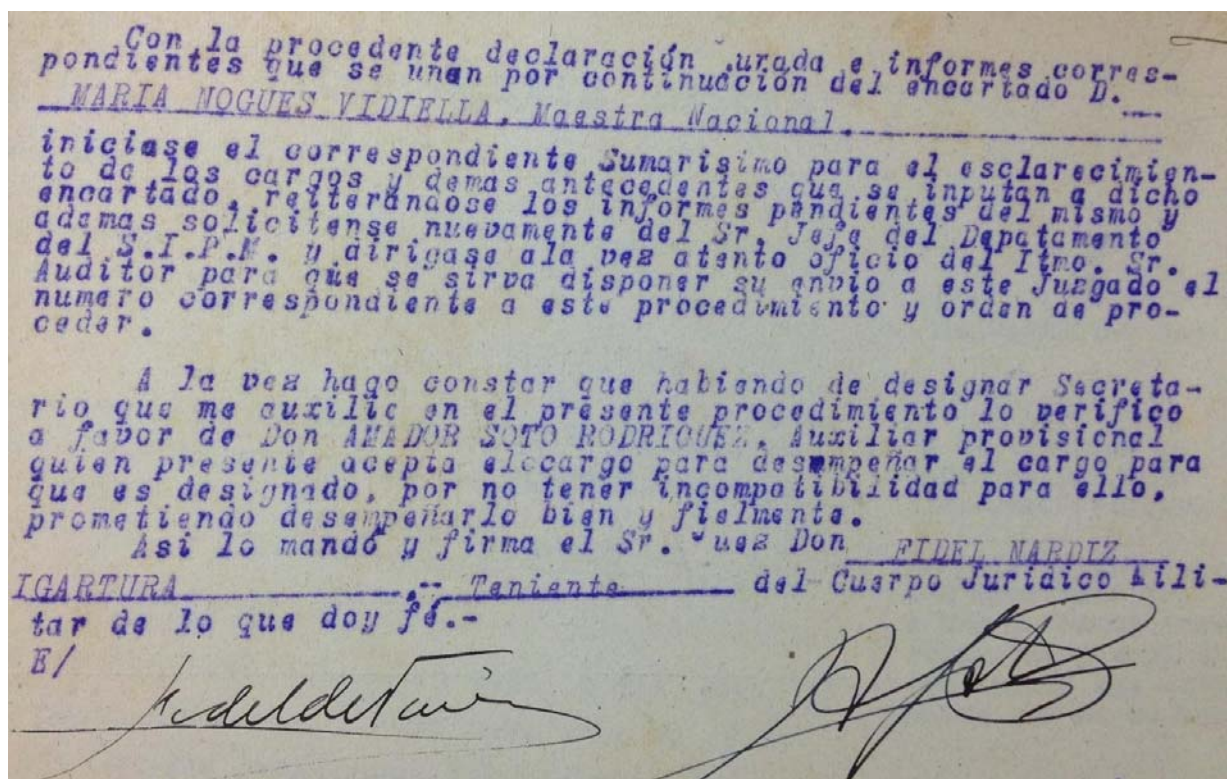 Con la procedente declaración .urada e informes corres-
pondientes que se unen por continuación del encartado D.
MARIA NOGUES VIDIELLA. Maestra Nacional.
iniciase el correspondiente Sumarisimo para el esclarecimien-
to de los cargos y demas antecedentes que se inputan a dicho
encartado, reiterandose los informes pendientes del mismo y
ademas solicitense nuevamente del Sr. Jefe del Depatamento
del S.I.P.M. y dirigase ala vez atento oficio del Iltmo. Sr.
Auditor para que se sirva disponer su envio a este Juzgado el
numero correspondiente a este procedimiento y orden de pro-
ceder.
A la vez hago constar que habiendo de designar Secreta-
rio que me auxilie en el presente procedimiento lo verifico
a favor de Don AMADOR SOTO RODRIGUEZ, Auxiliar provisional
quien presente acepta elccargo para desempeñar el cargo para
que es designado, por no tener incompatibilidad para ello,
prometiendo desempeñarlo bien y fielmente.
Asi lo mandó y firma el Sr. Juez Don FIDEL NARDIZ
IGARTURA .- Teniente del Cuerpo Juridico Mili-
tar de lo que doy fé.-
E/